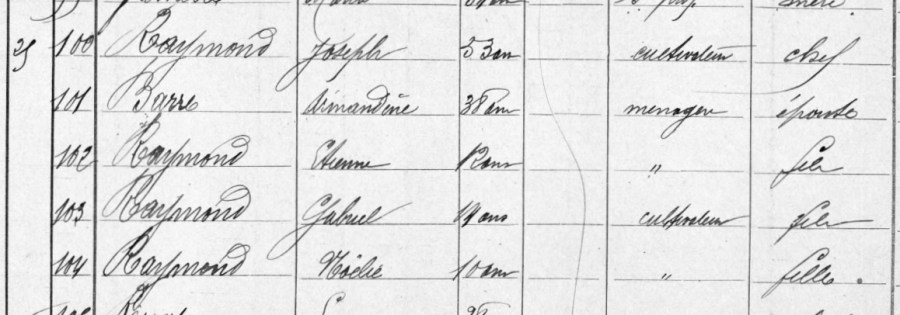 25 100 Raymond Joseph 53 ans cultivateur chef
101 Barre Armandine 38 ans menagère épouse
102 Raymond Etienne 12 ans " fils
103 Raymond Gabriel 19 ans cultivateur fils
104 Raymond Noélie 10 ans " fille